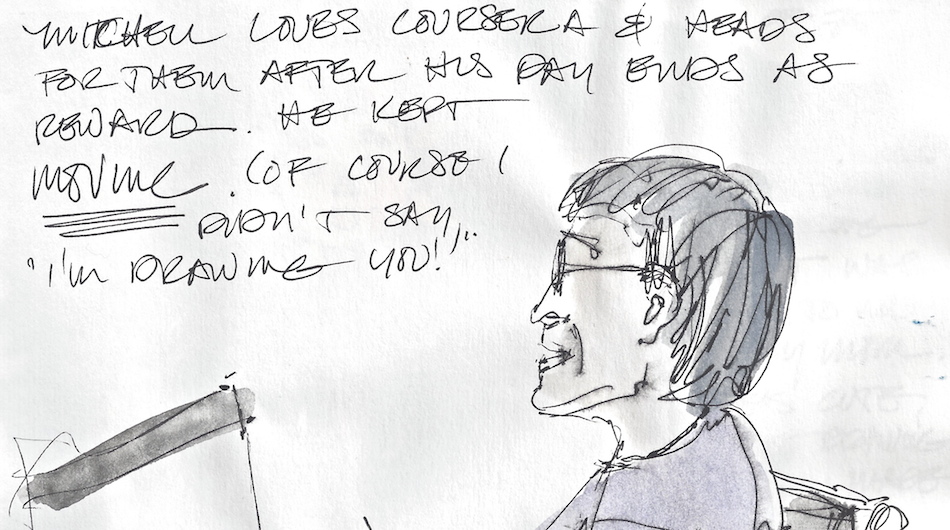 MITCHELL LOVES COURSERA & HEADS
FOR THEM AFTER HIS DAY ENDS AS
REWARD. HE KEPT
MOVING. (OF COURSE I
DIDN'T SAY,
"I'M DRAWING YOU!"